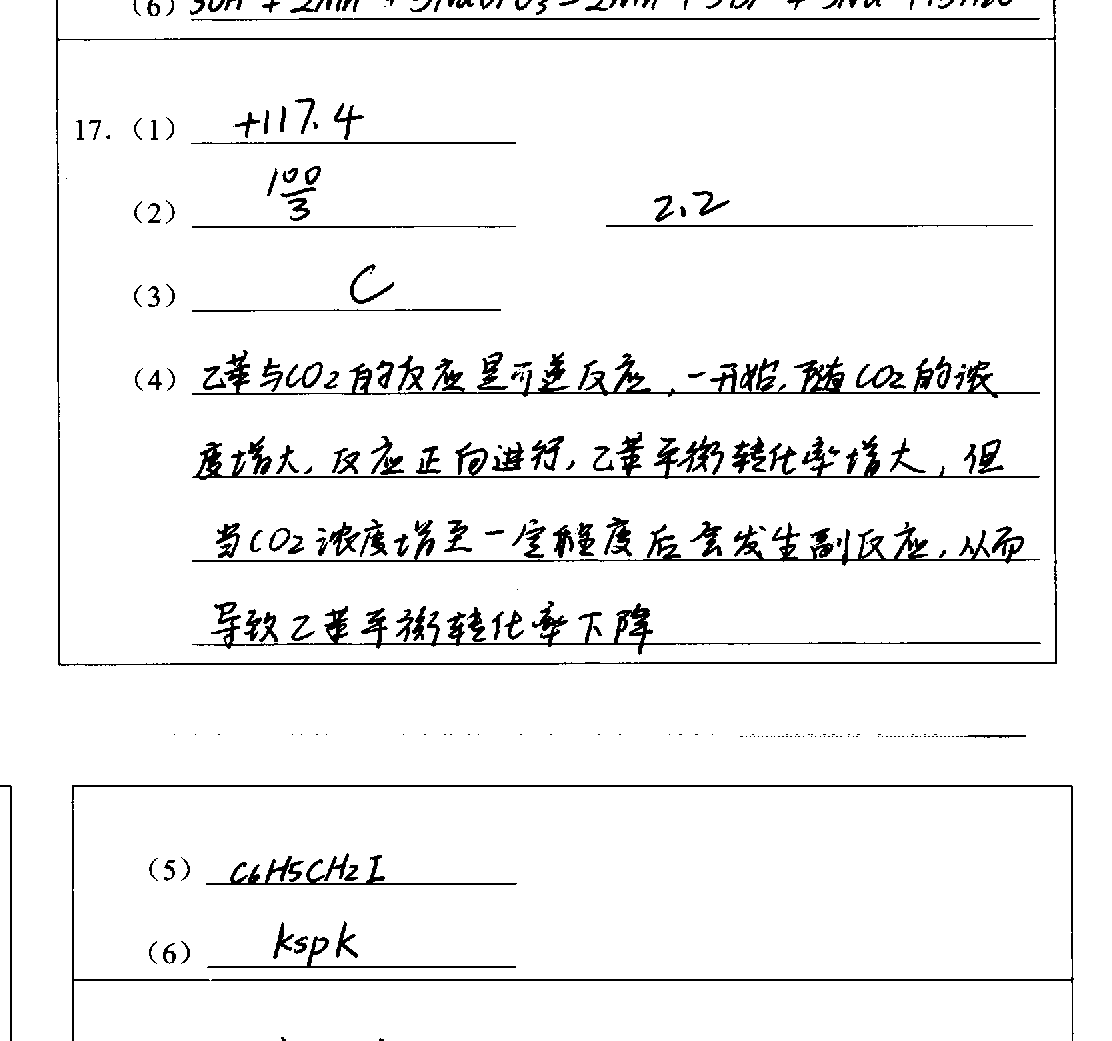 (6)
17. (1) +117.4
(2) 100/3 2.2
(3) C
(4) 乙苯与CO2的反应是可逆反应,一开始,随CO2的浓
度增大,反应正向进行,乙苯平衡转化率增大,但
当CO2浓度增至一定程度后会发生副反应,从而
导致乙苯平衡转化率下降
(5) C6H5CH2I
(6) kspk